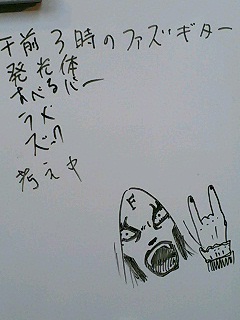 午前3時のファズギター
発光体
すべるバー
ラメ
ズック
考え中